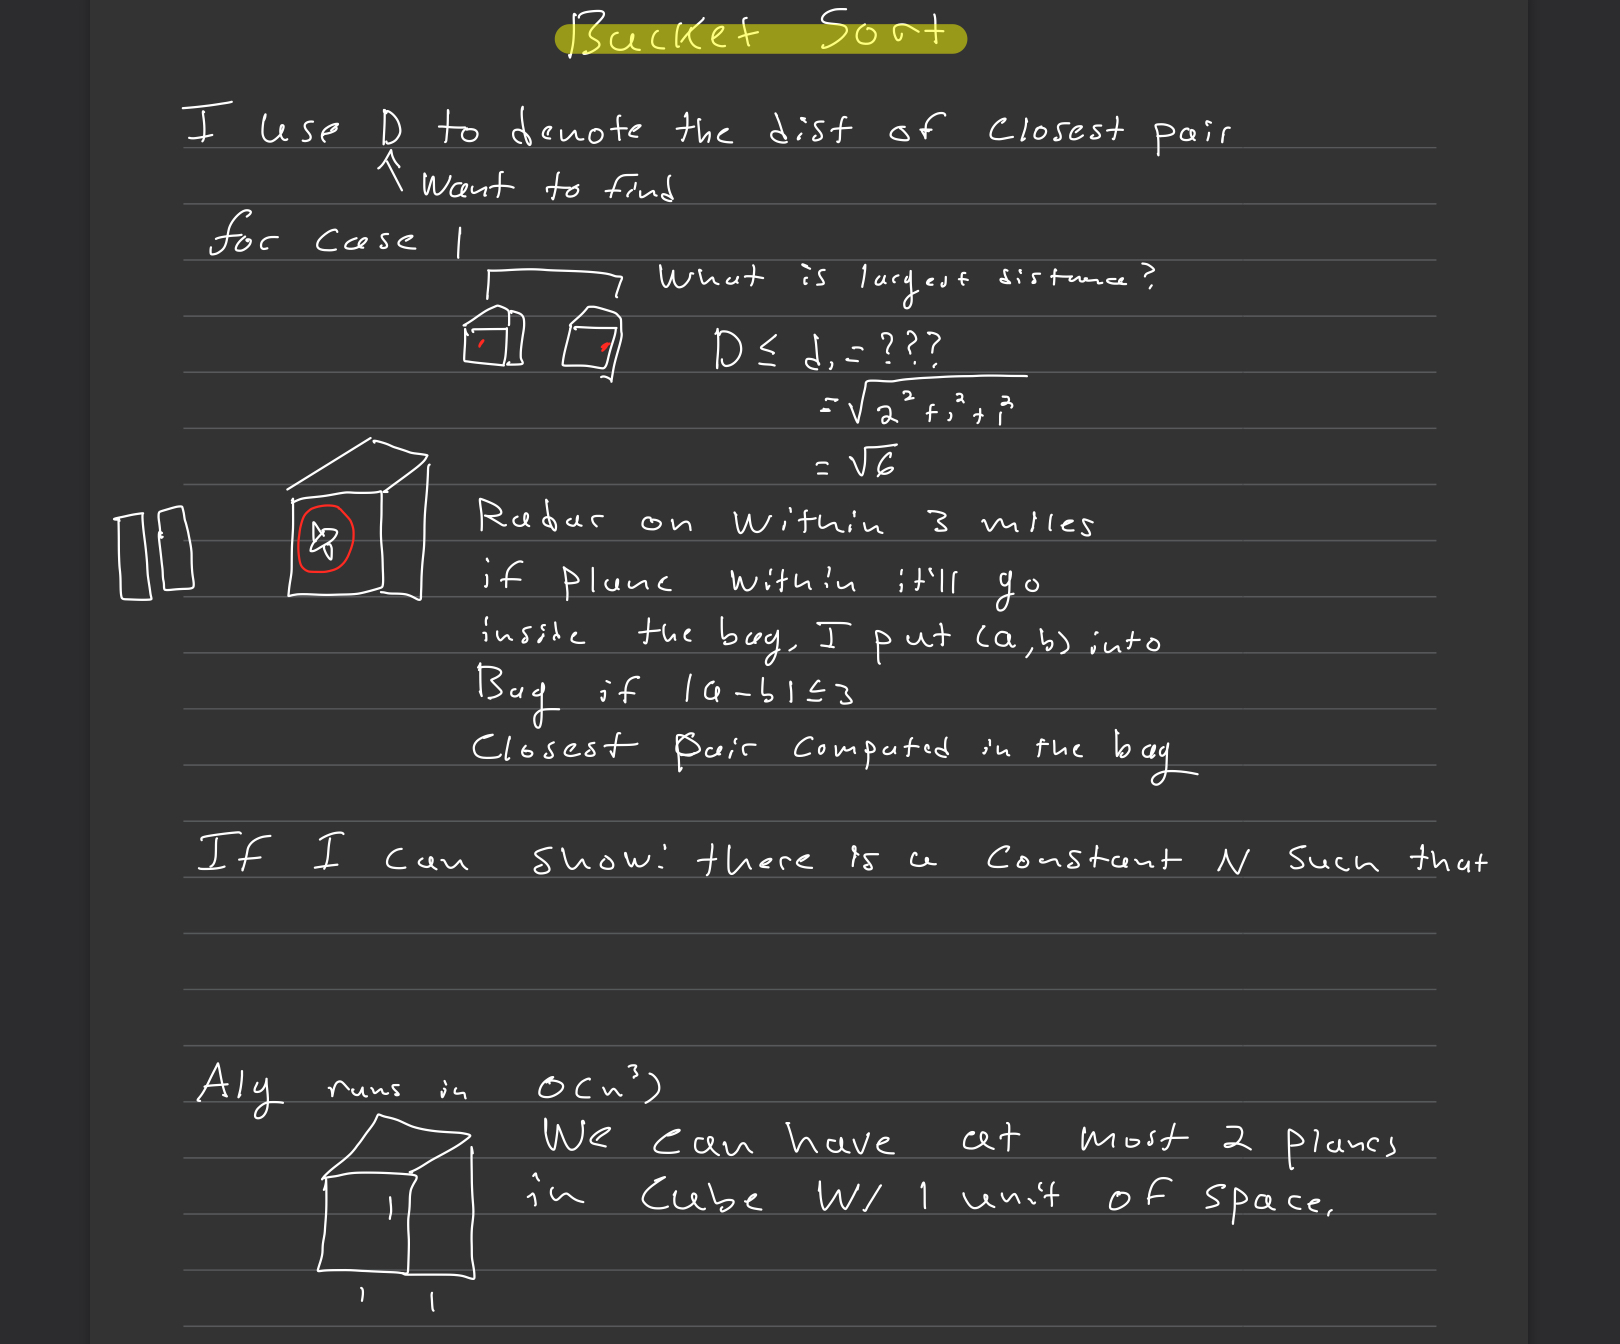 Bucket Sort
I use D to denote the dist of closest pair
↑ Want to find
for case 1
What is largest distance?
D ≤ d, = ???
= √2² + 1² + 1²
= √6
Radar on within 3 miles
if plane within it'll go
inside the bag, I put (a,b) into
Bag if |a-b| ≤ 3
Closest Pair Computed in the bag
If I can show: there is a constant N such that
Alg runs in O(n³)
We can have at most 2 planes
in Cube W/ 1 unit of space.
1
1 1